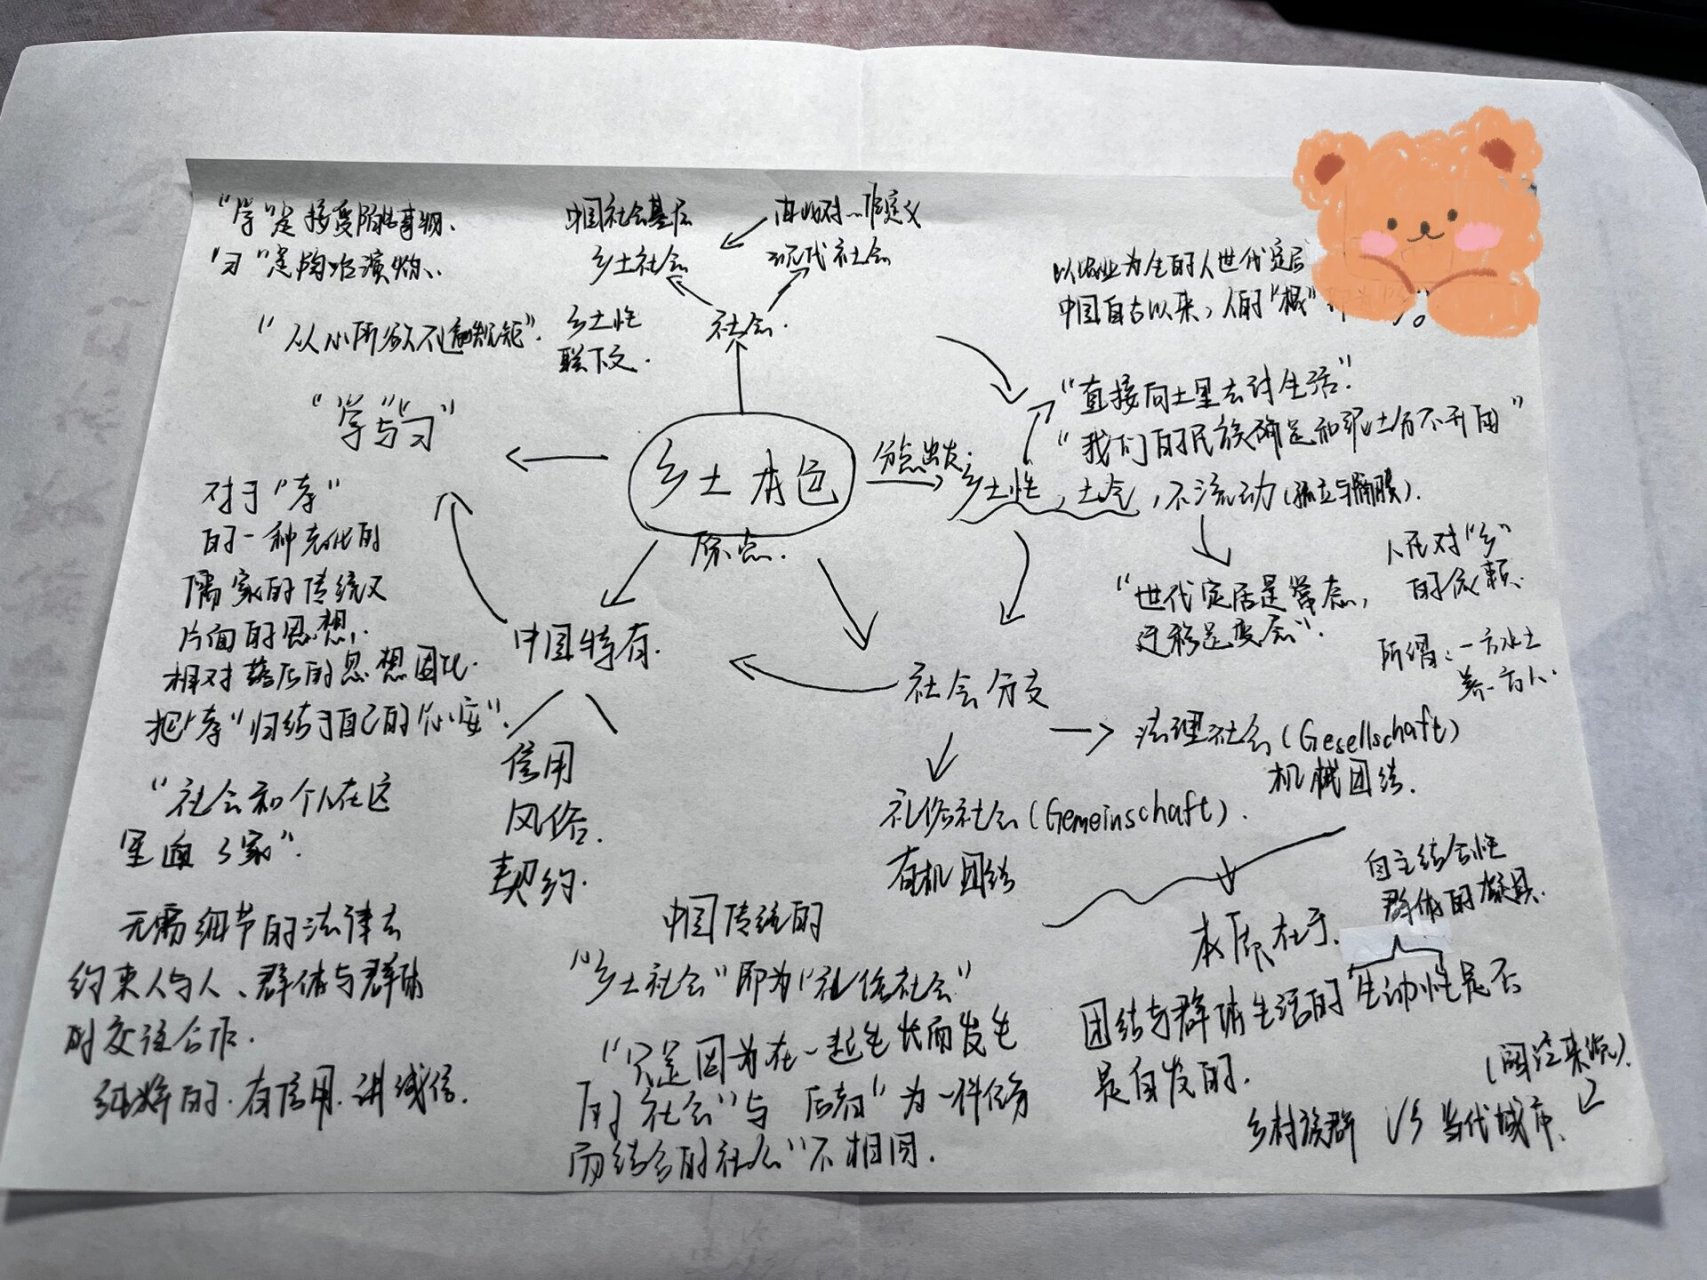 "学"是接受陌生事物、
"习"是
"从心所欲不逾规矩".
"学"与"习"
中国社会基层
乡土社会
定义
现代社会
乡土性
联下文.
社会.
以农业为生的人世代定居
中国自古以来，人的"根"
"直接向土里去讨生活".
"我们的民族确是和泥土分不开的"
乡土本色
原点.
乡土性，土气，不流动(孤立与隔膜).
"世代定居是常态，
迁移是变态".
人民对"乡"
的依赖.
所谓:一方水土
养一方人.
对于"孝"
的一种老化的
儒家的传统又
片面的思想，
相对落后的思想固化.
把"孝"归结于自己的"心安".
中国特有.
信用
风俗.
契约.
社会分支
法理社会(Gesellschaft)
机械团结.
礼俗社会(Gemeinschaft).
有机团结
"社会和个人在这
里通了家".
无需细节的法律去
约束人与人、群体与群体
的交往合作.
纯粹的.有信用.讲诚信.
中国传统的
"乡土社会"即为"礼俗社会"
"只是因为在一起生长而发生
的社会"与 后者"为一件任务
而结合的社会"不相同.
本质在于.
自主结合性
群体的
团结与群体生活的生动性是否
是自发的.
乡村族群 VS 当代城市.